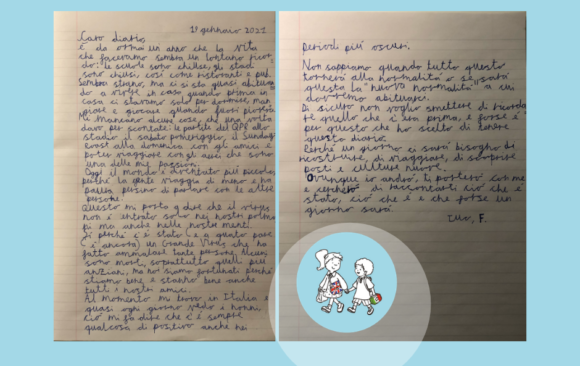 1º gennaio 2021
Caro diario,
è da ormai un anno che la vita
che facevamo sembra un lontano ricor
do: le scuole sono chiuse, gli stadi
sono chiusi, così come ristoranti e pub.
Sembra strano, ma ci si sta quasi abituan
do a vivere in casa quando prima in
casa ci stavamo solo per dormire, man
giare e giocare quando fuori pioveva.
Mi mancano alcune cose, che una volta
davo per scontate: le partite del QPR allo
stadio il sabato pomeriggio, il Sunday
roast alla domenica con gli amici e
poter viaggiare con gli aerei che sono
una delle mie passioni.
Oggi il mondo è diventato più piccolo,
perché la gente viaggia di meno e ha
paura persino di parlare con le altre
persone.
Questo mi porta a dire che il virus
non è entrato solo nei nostri polmo
ni ma anche nelle nostre menti.
Sì perché c'è stato e a quanto pare
c'è ancora) un Grande Virus che ha
fatto ammalare tante persone, alcuni
sono morti, soprattutto quelli più
anziani, ma noi siamo fortunati perché
stiamo bene e stanno bene anche
tutti i nostri amici.
Al momento mi trovo in Italia e
quasi ogni giorno vedo i nonni,
ciò mi fa dire che c'è sempre
qualcosa di positivo anche nei
periodi più oscuri.
Non sappiamo quando tutto questo
tornerà alla normalità o se sarà
questa la "nuova normalità" a cui
dovremo abituarci.
Di sicuro non voglio smettere di ricorda
re quello che c'era prima, e forse è
per questo che ho scelto di tenere
questo diario.
Perché un giorno ci sarà bisogno di
ricostruire, di viaggiare, di scoprire
posti e culture nuove.
Ovunque io andrò, ti porterò con me
e cercherò di raccontarti ciò che è
stato, ciò che è e che forse un
giorno sarà.
tuo, F.